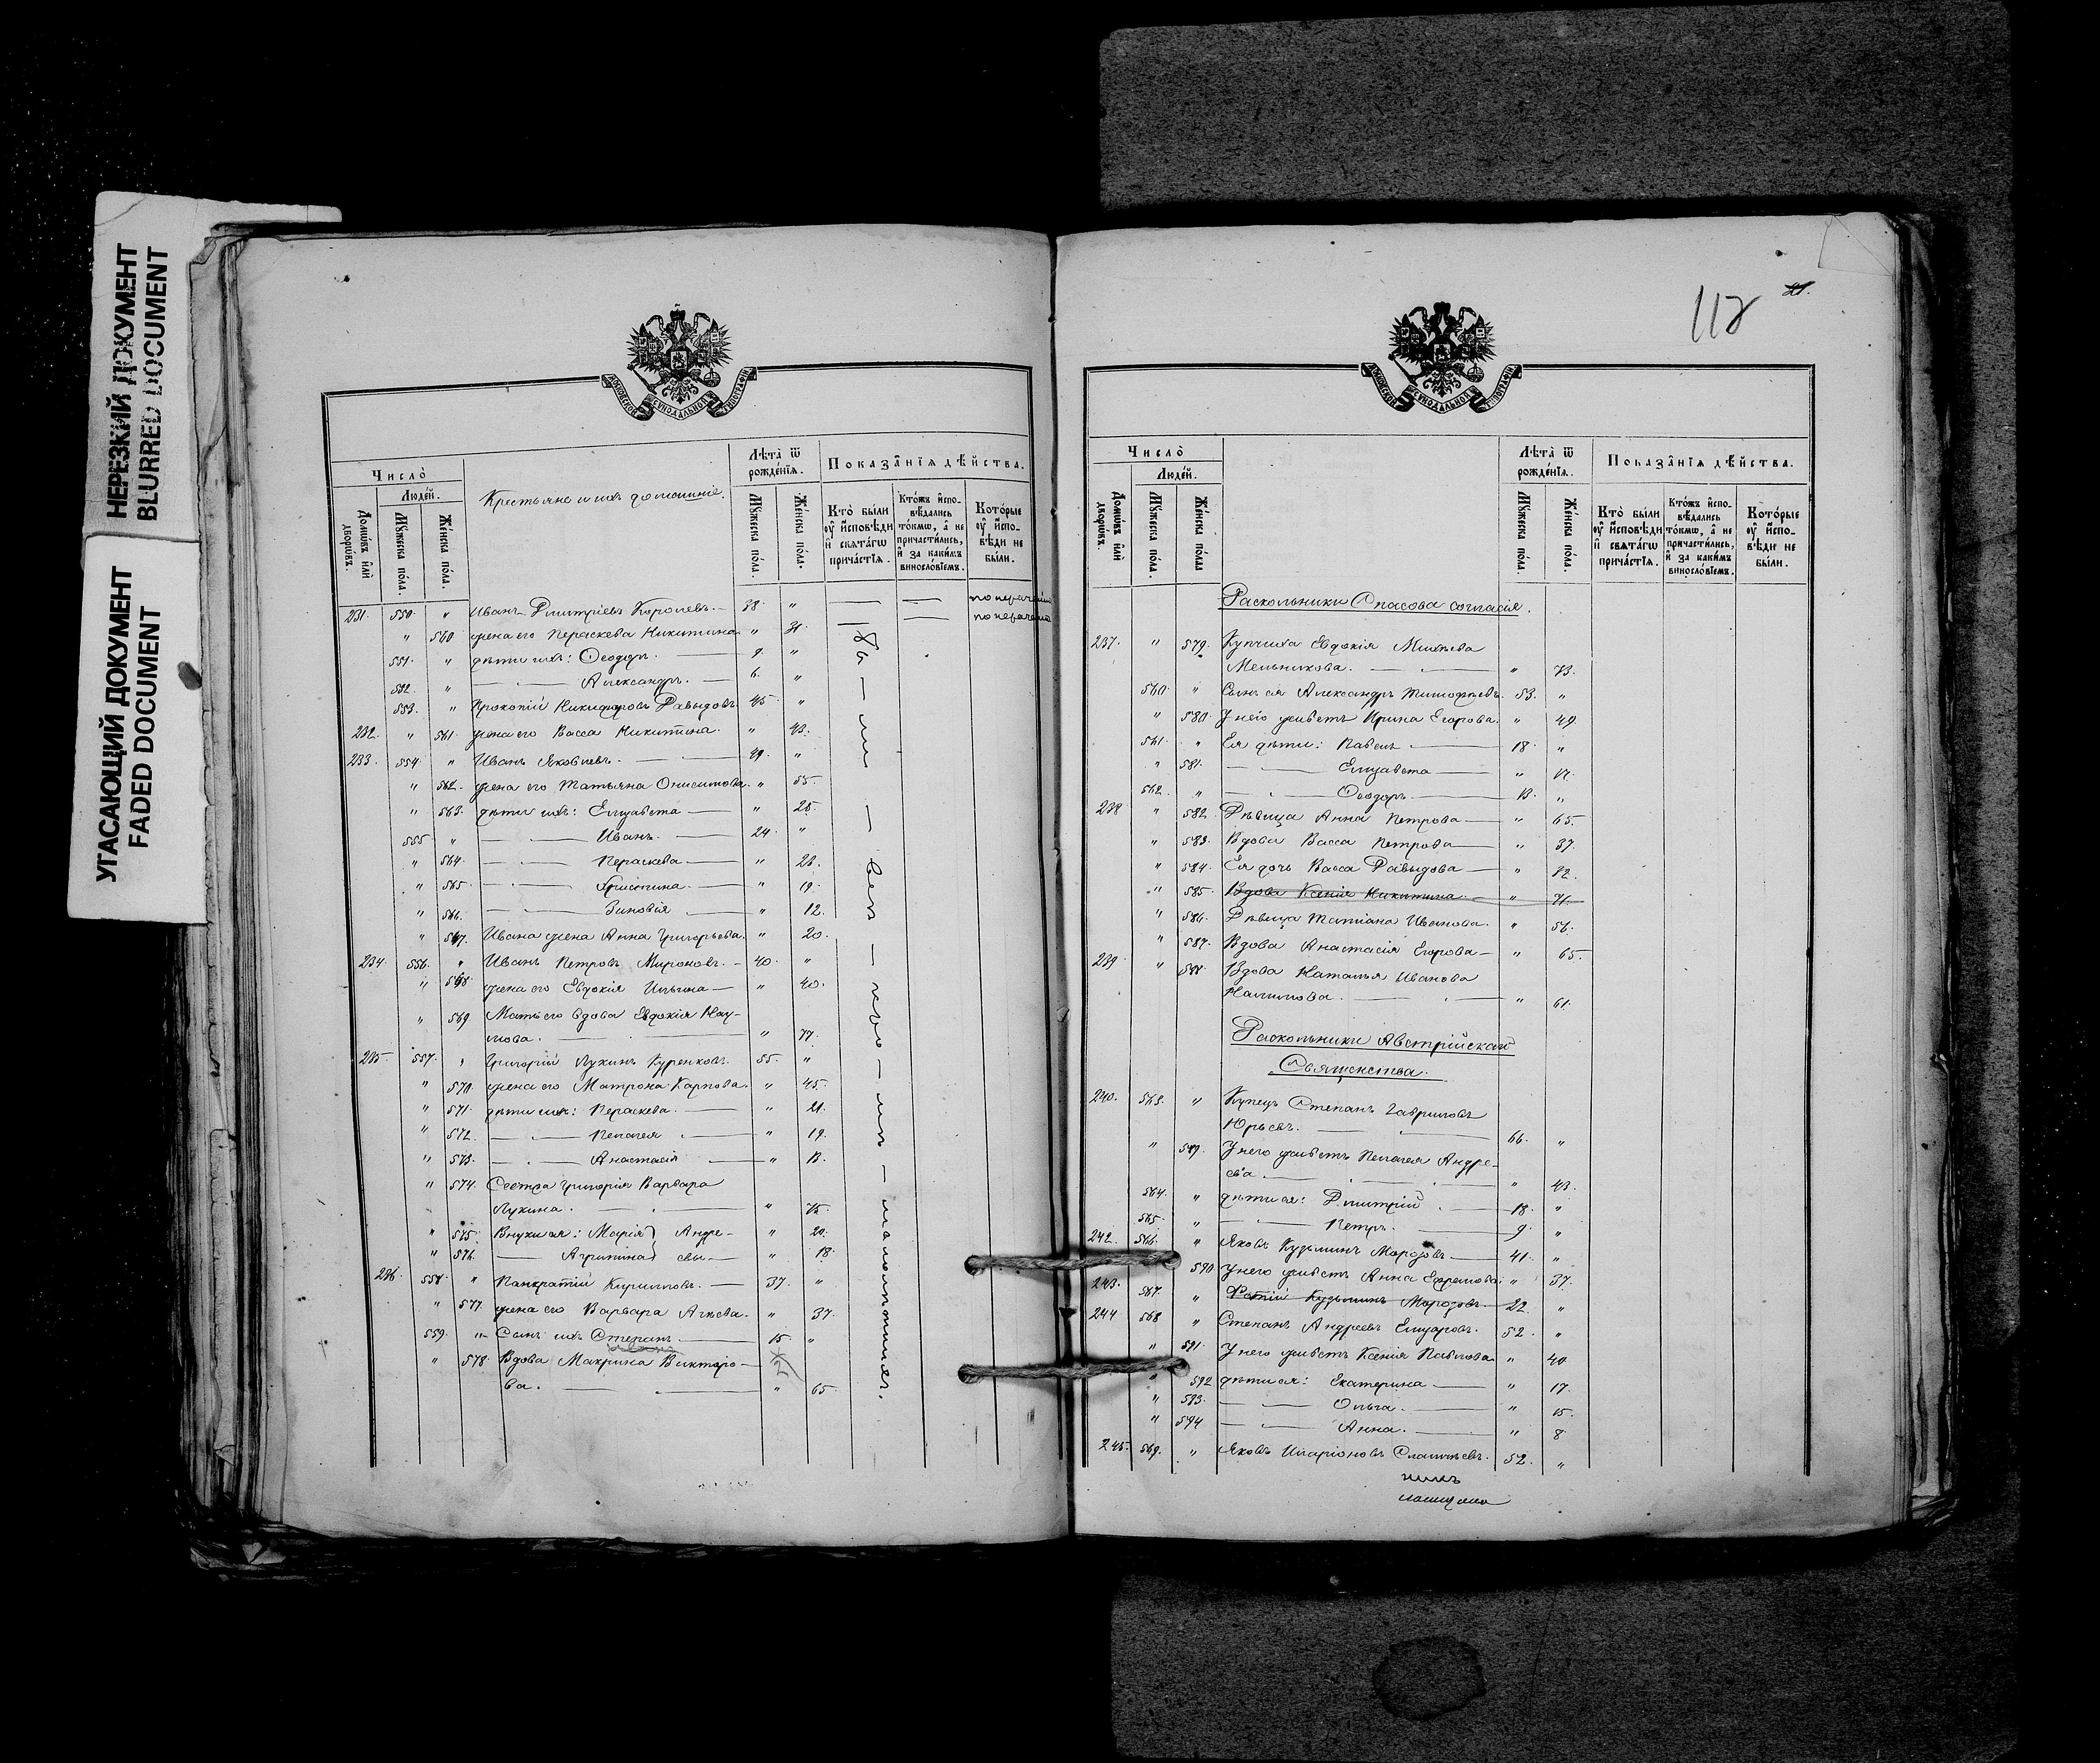 НЕРЕЗКИЙ ДОКУМЕНТ
BLURRED DOCUMENT
УГАСАЮЩИЙ ДОКУМЕНТ
FADED DOCUMENT
МОСКОВСКОЙ СѴНОДАЛЬНОЙ ТИПОГРАФІИ
Число̀
Люде́й.
Домѡ́въ и҆лѝ дворѡ́въ.
Мꙋ́жеска по́ла.
Же́нска по́ла.
Крестьяне и ихъ домашніе.
Лѣ́та ѿ рожде́нїѧ.
Мꙋ́жеска по́ла.
Же́нска по́ла.
Показа̑нїѧ дѣ́йства.
Кто̀ бы́ли ᲂу҆ и҆сповѣ́ди и҆ свѧта́гѡ причⷭ҇тїѧ.
Кто́жъ и҆спо-вѣ́дались то́кмѡ, а҆ не причасти́лись, и҆ за каки́мъ винословїемъ.
Кото́рые ᲂу҆ и҆спо-вѣ́ди не бы́ли.
231. 550. " Иванъ Дмитріевъ Королевъ. 38. " — — по нераденію
" 560 жена его Пераскева Никитина " 31. — по нераденію
551. " дѣти ихъ: Ѳеодоръ. 9. "
552. " Александръ. 6. "
553. " Прокопій Никифоровъ Давыдовъ. 45. "
232. " 561. жена его Васса Никитина. " 43.
233. 554. " Иванъ Яковлевъ. 49. "
" 562. жена его Татьяна Онисимова. " 55.
" 563. дѣти ихъ: Елизавета " 25.
555 " Иванъ. 24. "
" 564. Пераскева "
" 565 Христина. " 19.
" 566. Зиновія " 12.
" 567. Ивана жена Анна Григорьева. " 20.
234. 556. " Иванъ Петровъ Мироновъ. 40. "
" 568 жена его Евдокія Ильина " 40.
" 569 Мать его вдова Евдокія Нау-
мова. " 77.
235. 557. " Григорій Лукинъ Куренковъ. 55. "
" 570. жена его Матрона Карпова. " 45.
" 571. дѣти ихъ: Пераскева. " 21.
" 572. Пелагея " 19.
" 573. Анастасія " 13.
" 574. Сестра Григорія Варвара
Лукина. " 75.
" 575. Внуки ея: Марія Андре- " 20.
" 576. Агрипина евы " 18.
236. 558. " Панкратій Кирилловъ. 37. "
" 577. жена его Варвара " 37.
559. " Сынъ ихъ Степанъ 15. "
Иванъ
" 578. Вдова Макрина Викторо-
ва. " 65.
112 21.
МОСКОВСКОЙ СѴНОДАЛЬНОЙ ТИПОГРАФІИ
Число̀
Люде́й.
Домѡ́въ и҆лѝ дворѡ́въ.
Мꙋ́жеска по́ла.
Же́нска по́ла
Лѣ́та ѿ рожде́нїѧ.
Мꙋ́жеска по́ла.
Же́нска по́ла.
Показа̑нїѧ дѣ́йства.
Кто̀ бы́ли ᲂу҆ и҆сповѣ́ди и҆ свѧта́гѡ прича́стїѧ.
Кто́жъ и҆спо-вѣ́дались то́кмѡ, а҆ не причасти́лись, и҆ за каки́мъ винословїемъ.
Кото́рые ᲂу҆ и҆спо-вѣ́ди не бы́ли.
Раскольники Спасова согласія.
237. " 579. Купчиха Евдокія
Мельникова. " 73.
560. " Сынъ ея Александръ Тимофѣевъ. 53. "
" 580. У него живетъ Ирина Егорова. " 49.
561. " Ея дѣти: Павелъ 18. "
" 581. Елизавета " 17.
562. " Ѳеодоръ 13. "
238 " 582. Дѣвица Анна Петрова " 65.
" 583. Вдова Васса Петрова " 37.
" 584. Ея дочь Васса Давыдова "
" 585. Вдова Ксенія Никитина. " 71.
" 586. Дѣвица Татіана Иванова. " 56.
" 587. Вдова Анастасія Егорова " 65.
239. " 588. Вдова Наталья Иванова
" 61.
Раскольники Австрійскаго
Священства.
240. 563. " Купецъ Степанъ Гавриловъ
Юрьевъ. 66. "
" 589. У него живетъ Пелагея Андре-
ева. " 43.
564. " дѣти ея: Дмитрій 18. "
565. " Петръ. 9 "
242. 566. " Яковъ Кузьминъ Морозовъ 41. "
590. У него живетъ Анна Ефремова. " 37.
243. 567. " Кузьминъ Морозовъ. 22. "
244 568 " Степанъ Андреевъ Елизаровъ. 52. "
" 591. У него живетъ Ксенія Павлова " 40
" 592 дѣти ея: Екатерина " 17.
" 593. Ольга. " 15.
" 594 Анна. " 8
245. 569. " Яковъ Иларіоновъ 52. "